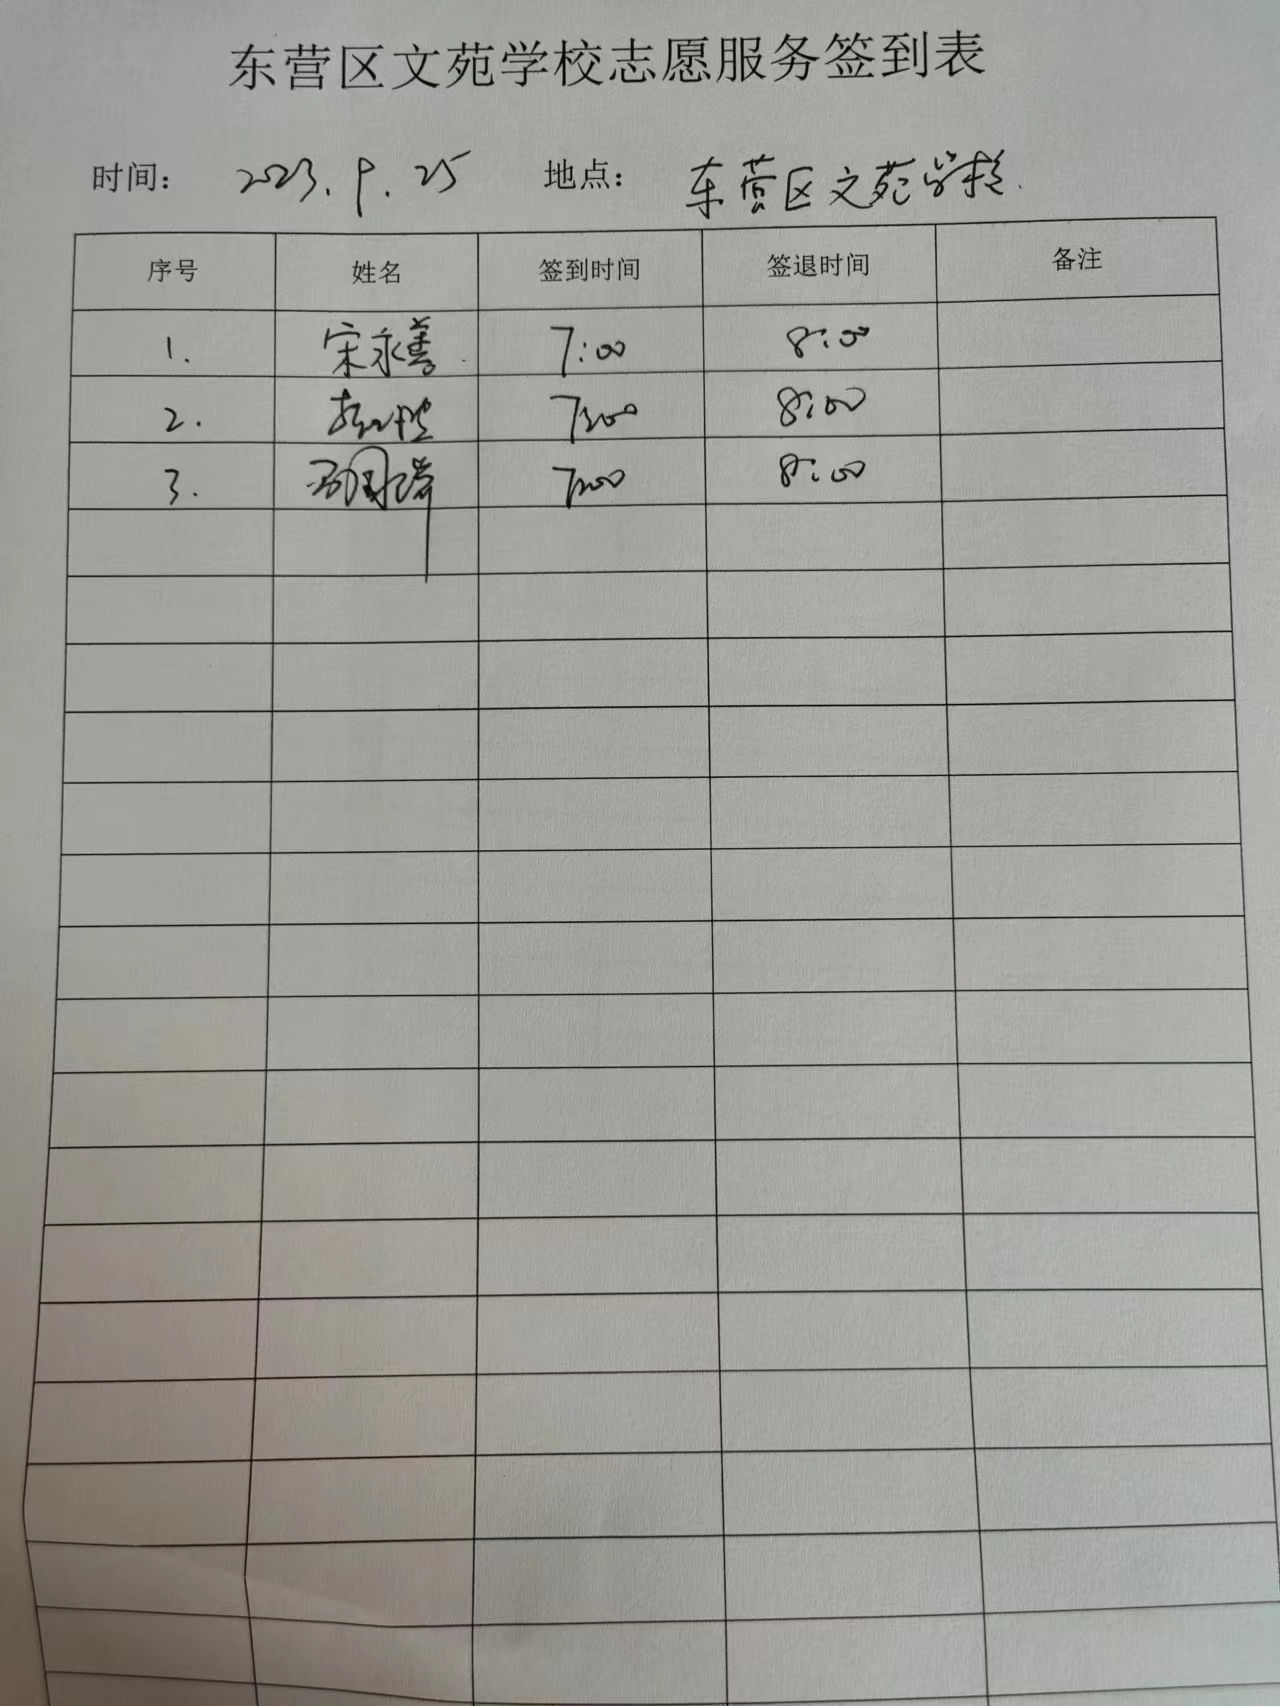 东营区文苑学校志愿服务签到表
时间: 2023.9.25 地点: 东营区文苑学校.
序号 姓名 签到时间 签退时间 备注
1. 宋永善 7:00 8:00
2. 7:00 8:00
3. 7:00 8:00